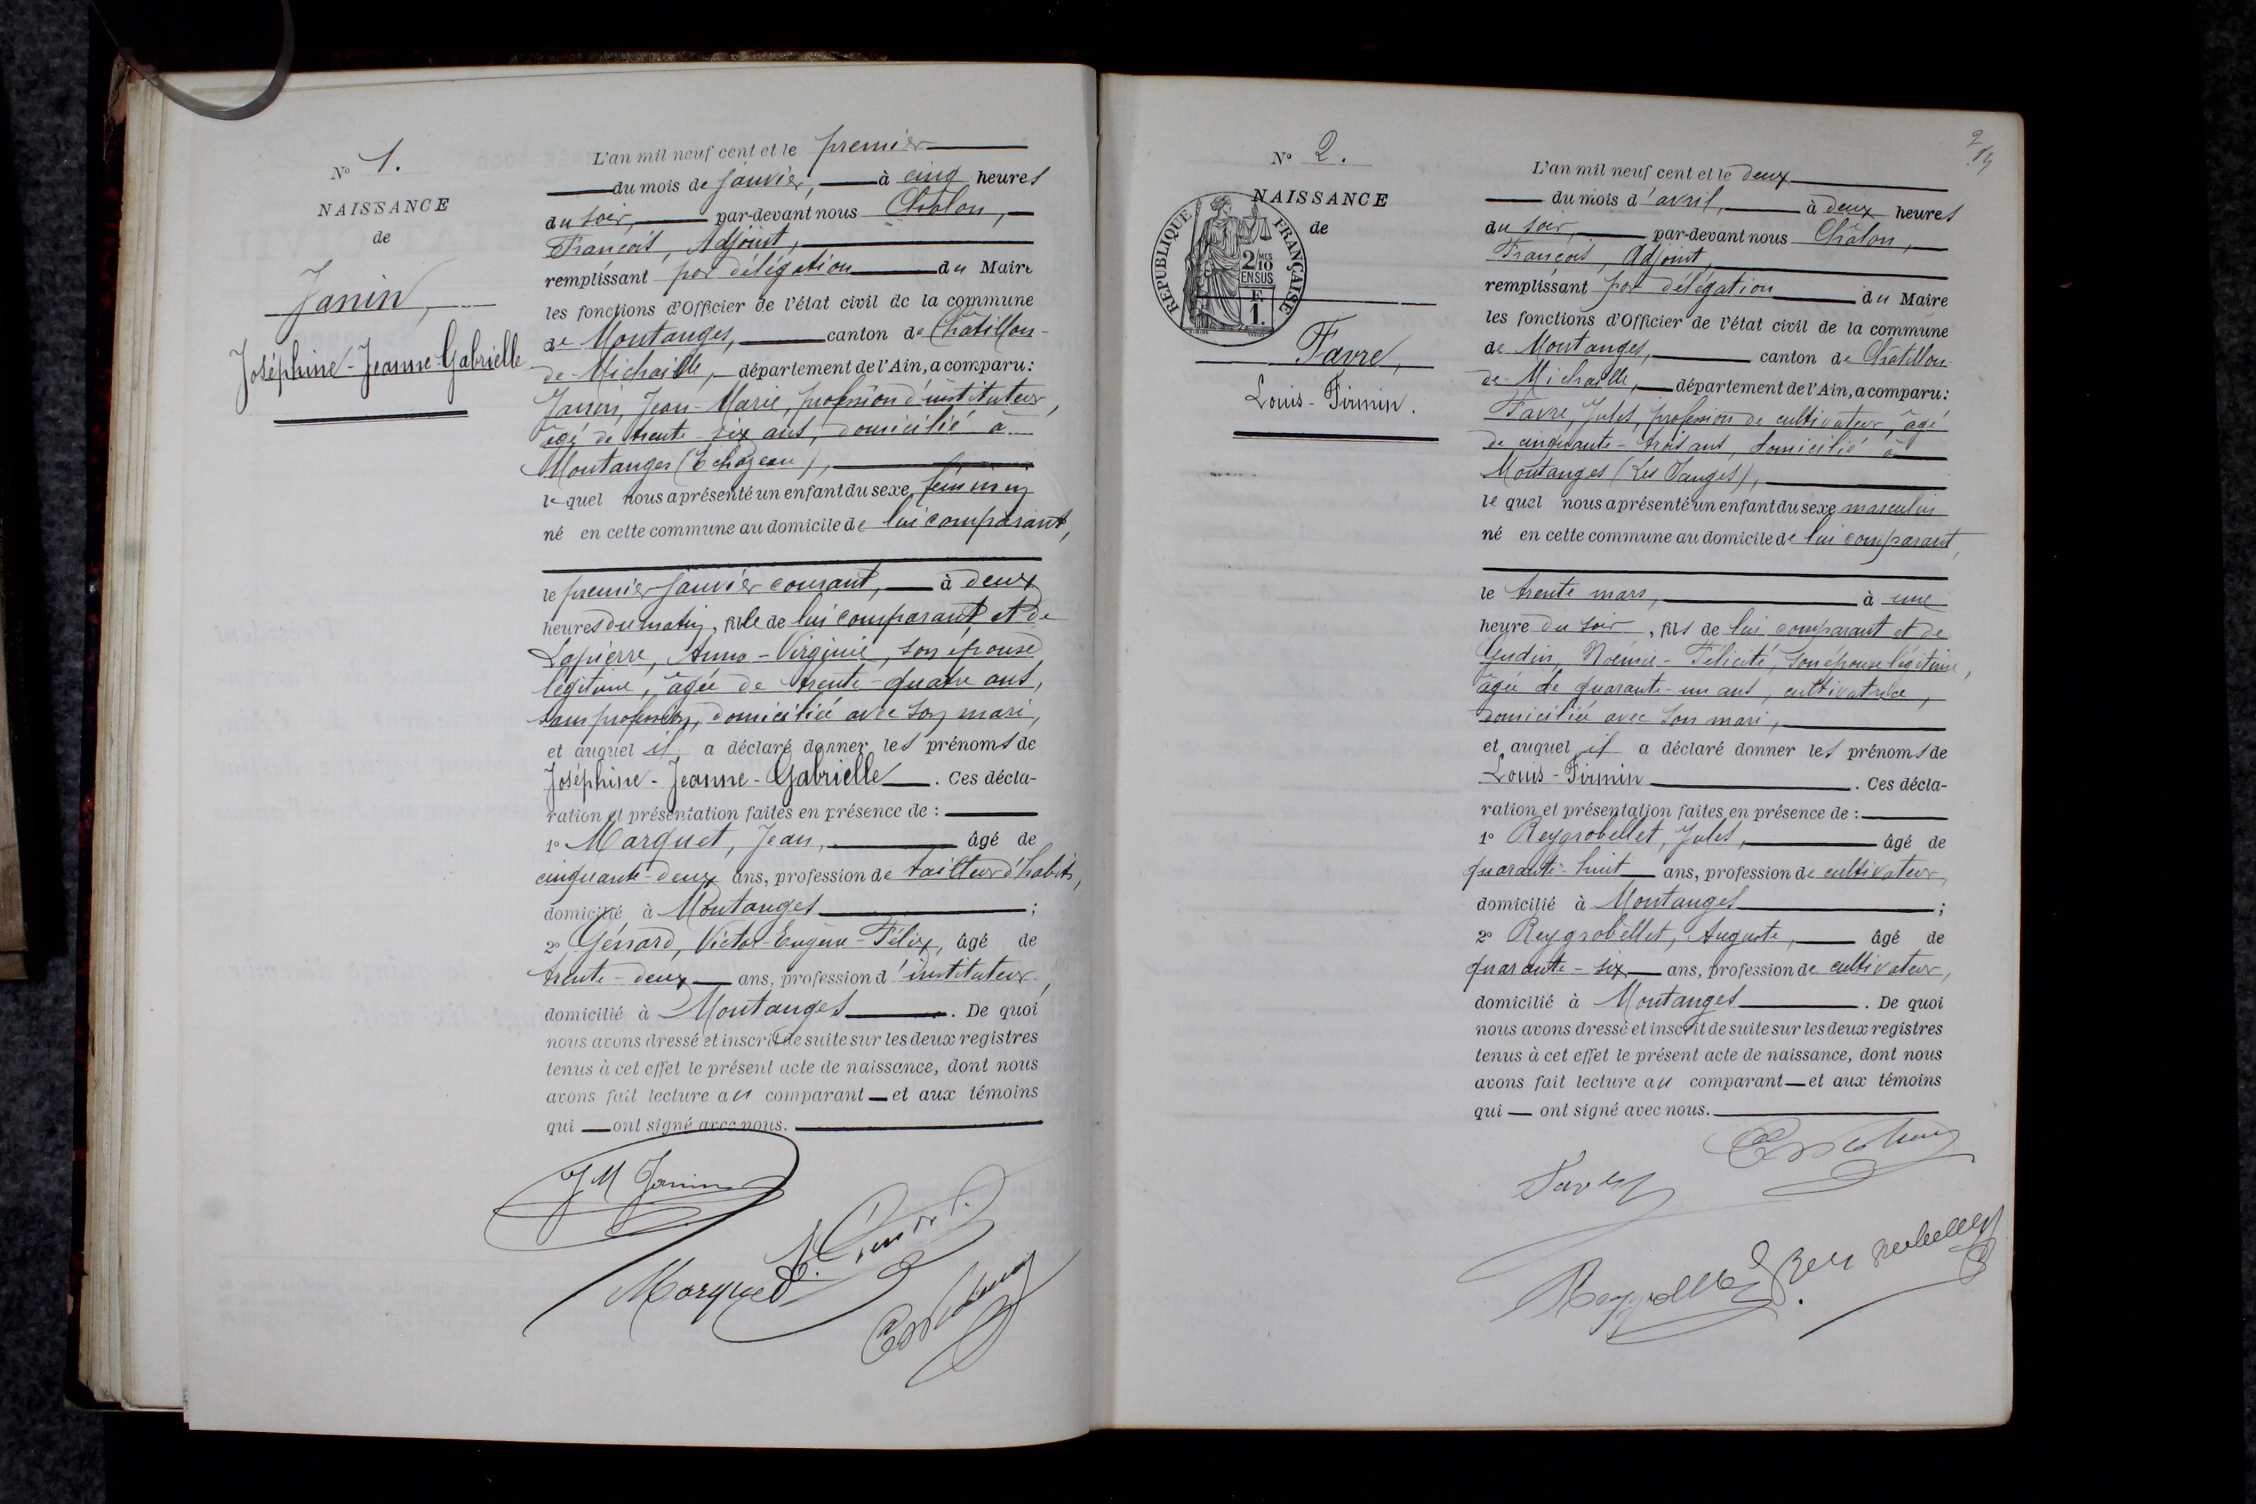 N° 1.
NAISSANCE
de
Janin,
Joséphine-Jeanne-Gabrielle
L'an mil neuf cent et le premier
du mois de janvier, à cinq heures
du soir, par-devant nous Châlon,
François, Adjoint,
remplissant par délégation du Maire
les fonctions d'Officier de l'état civil de la commune
de Montanges, canton de Châtillon-
de-Michaille, département de l'Ain, a comparu:
Janin, Jean-Marie, profession d'instituteur,
âgé de trente-six ans, domicilié à
Montanges (Echazeau),
lequel nous a présenté un enfant du sexe féminin
né en cette commune au domicile de lui comparant,
le premier janvier courant, à deux
heures du matin, fille de lui comparant et de
Lapierre, Anna-Virginie, son épouse
légitime, âgée de trente-quatre ans,
sans profession, domiciliée avec son mari,
et auquel il a déclaré donner les prénoms de
Joséphine-Jeanne-Gabrielle. Ces décla-
ration et présentation faites en présence de:
1° Marquet, Jean, âgé de
cinquante-deux ans, profession de tailleur d'habits,
domicilié à Montanges;
2° Génard, Victor-Eugène-Félix, âgé de
trente-deux ans, profession d'instituteur,
domicilié à Montanges. De quoi
nous avons dressé et inscrit de suite sur les deux registres
tenus à cet effet le présent acte de naissance, dont nous
avons fait lecture au comparant et aux témoins
qui ont signé avec nous.
JM Janin
Marquet
2
N° 2.
NAISSANCE
de
RÉPUBLIQUE FRANÇAISE
2 MES
10
EN SUS
F.
1.
Favre,
Louis-Firmin.
L'an mil neuf cent et le deux
du mois d'avril, à deux heures
du soir, par-devant nous Châlon,
François, Adjoint,
remplissant par délégation du Maire
les fonctions d'Officier de l'état civil de la commune
de Montanges, canton de Châtillon-
de-Michaille, département de l'Ain, a comparu:
Favre, Jules, profession de cultivateur, âgé
de cinquante-trois ans, domicilié à
Montanges (Les Vanges),
lequel nous a présenté un enfant du sexe masculin
né en cette commune au domicile de lui comparant,
le trente mars, à une
heure du soir, fils de lui comparant et de
Gudin, Noémie-Félicité, son épouse légitime,
âgée de quarante-un ans, cultivatrice,
domiciliée avec son mari,
et auquel il a déclaré donner les prénoms de
Louis-Firmin. Ces décla-
ration et présentation faites en présence de:
1° Reygrobellet, Jules, âgé de
quarante-huit ans, profession de cultivateur,
domicilié à Montanges;
2° Reygrobellet, Auguste, âgé de
quarante-six ans, profession de cultivateur,
domicilié à Montanges. De quoi
nous avons dressé et inscrit de suite sur les deux registres
tenus à cet effet le présent acte de naissance, dont nous
avons fait lecture au comparant et aux témoins
qui ont signé avec nous.